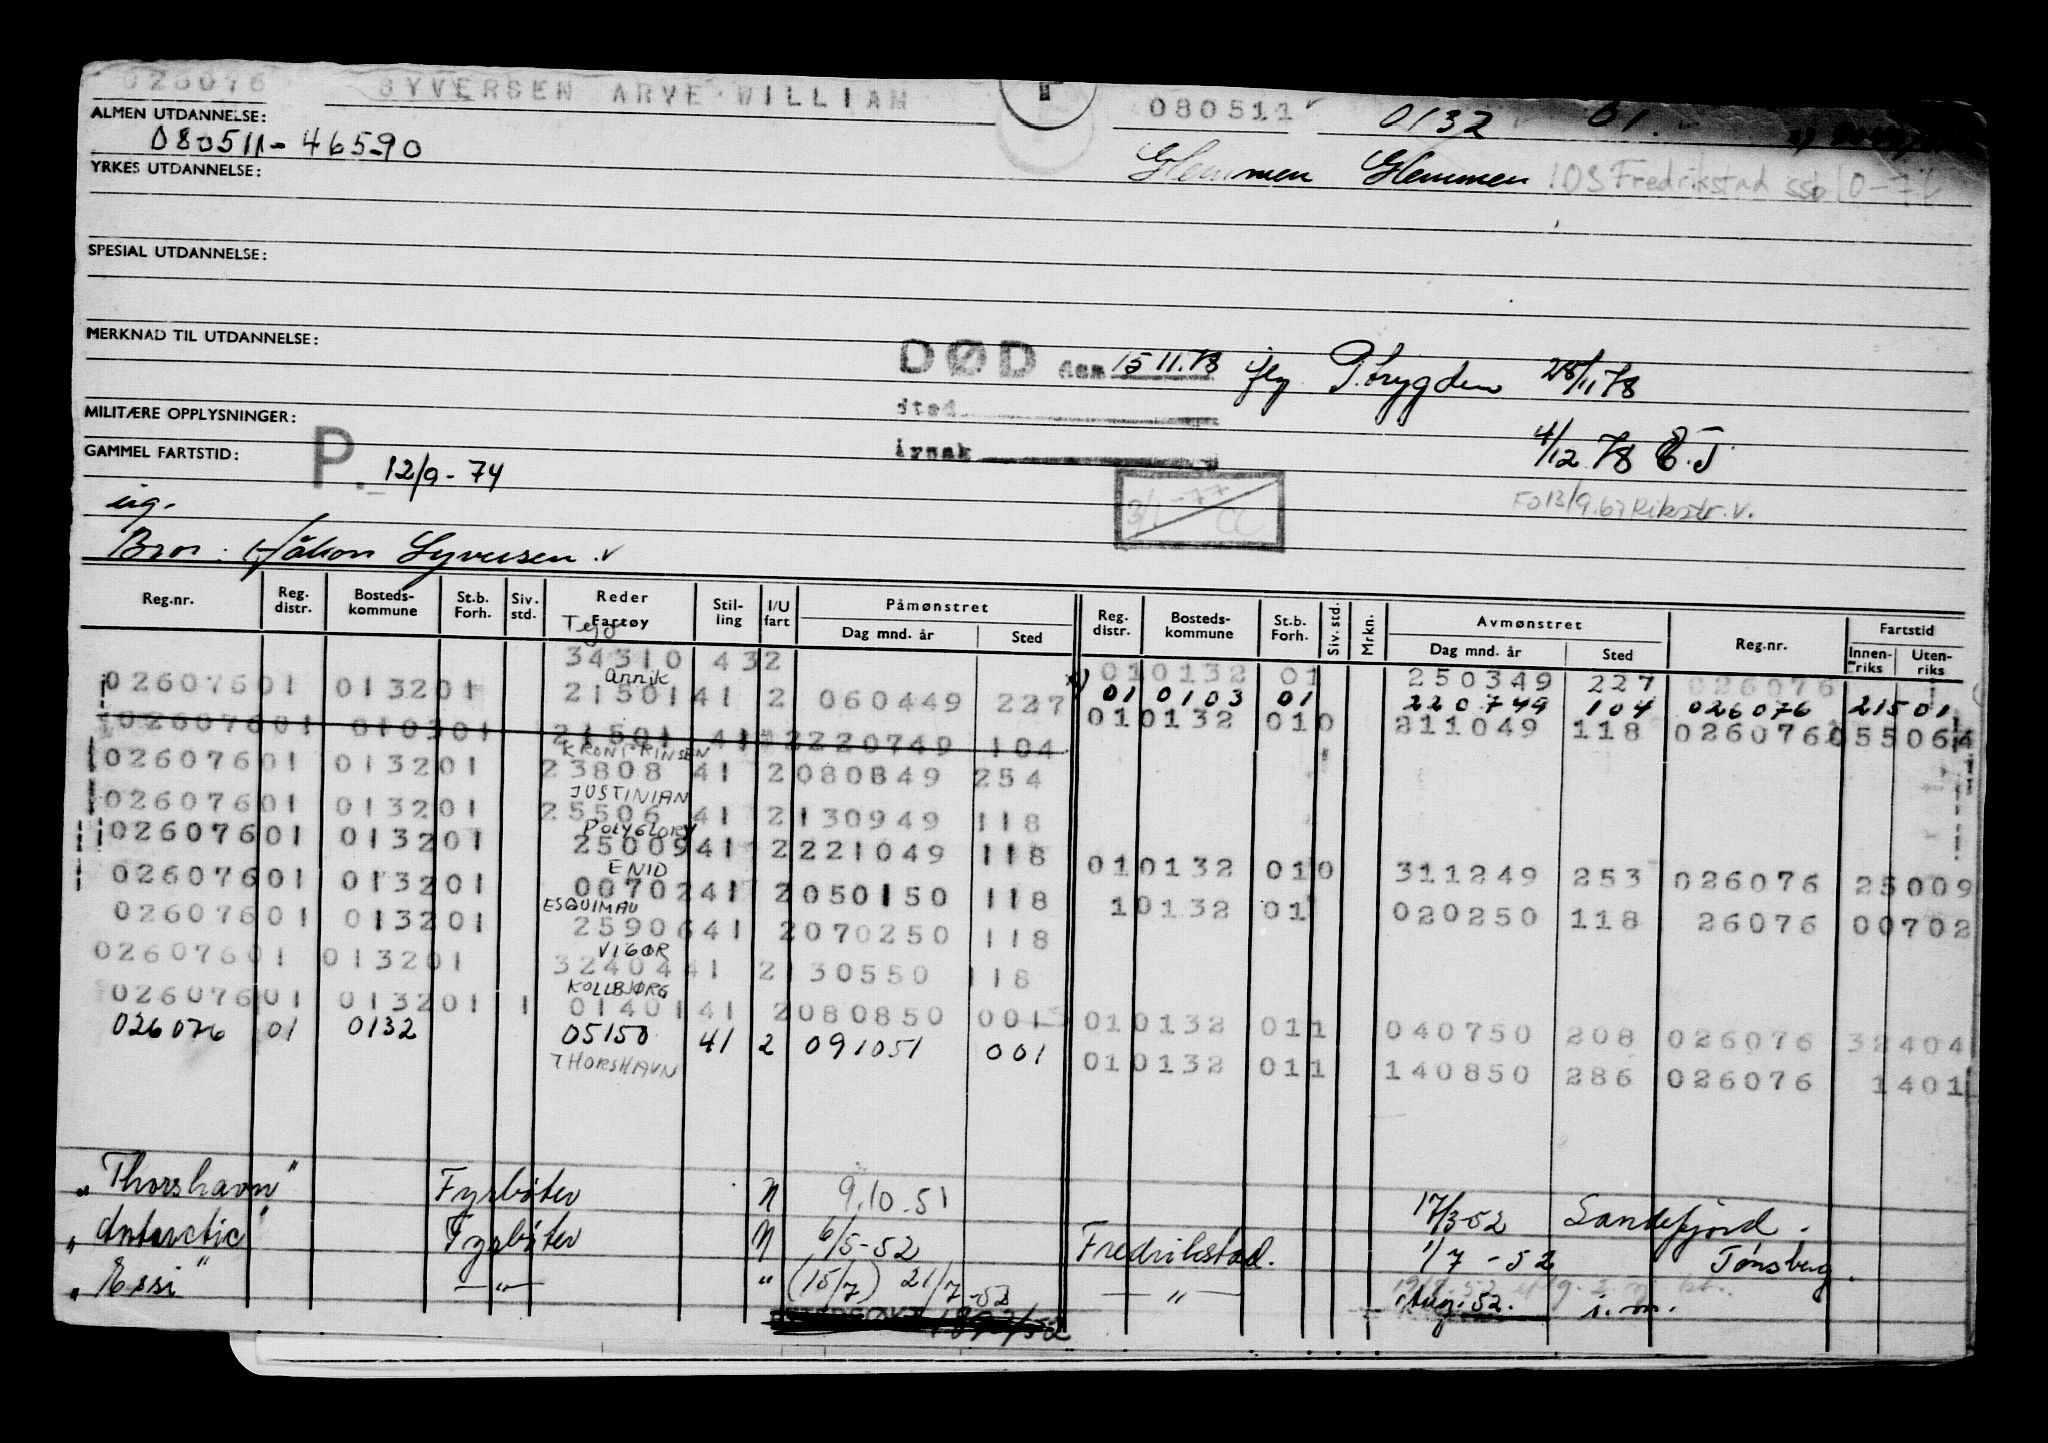 026076 SYVERSEN ARVE WILLIAM 080511 0132 01.
ALMEN UTDANNELSE:
080511-46590
Glemmen Glemmen IOS Fredrikstad
YRKES UTDANNELSE:
SPESIAL UTDANNELSE:
MERKNAD TIL UTDANNELSE:
DØD den 15 11.78 iflg P.trygden 28/11 78
sted
MILITÆRE OPPLYSNINGER:
årsak
4/12 78
GAMMEL FARTSTID:
P. 12/9-74
3/1-77 CC
FO 13/9.67 Rikstr.V.
Bror: Håkon Syversen v
Reg.nr. Reg. distr. Bosteds- kommune St.b. Forh. Siv. std. Reder Fartøy Stil- ling I/U fart Påmønstret Dag mnd. år Sted Reg. distr. Bosteds- kommune St.b. Forh. Siv. std. Mrkn. Avmønstret Dag mnd. år Sted Reg.nr. Fartstid Innen- riks Uten- riks
Tejo
34310 432 010132 01 250349 227 026076
Annik
02607601 013201 2150141 2 060449 227 x) 01 0103 01 220749 104 026076 21501
02607601 010301 21501 41 2 220749 104 010132 010 211049 118 026076 055064
KRONPRINSEN
02607601 013201 23808 41 2 080849 254
JUSTINIAN
02607601 013201 25506 41 2 130949 118
POLYGLORY
02607601 013201 2500941 2 221049 118 010132 010 311249 253 026076 25009
ENID
02607601 013201 0070241 2 050150 118 10132 01 020250 118 26076 00702
ESQUIMAU
02607601 013201 2590641 2 070250 118
VIGØR
02607601 013201 3240441 2 130550 118
KOLLBJØRG
02607601 013201 1 0140141 2 080850 001 010132 011 040750 208 026076 32404
026076 01 0132 05150 41 2 091051 001
THORSHAVN
010132 011 140850 286 026076 1401
"Thorshavn" Fyrbøter N 9.10.51 17/3-52 Sandefjord.
"Antarctic" Fyrbøter N 6/5-52 Fredrikstad. 1/7-52 Tønsberg.
"Essi" —"— " (15/7) 21/7-52 —"— Aug.-52. i.m.